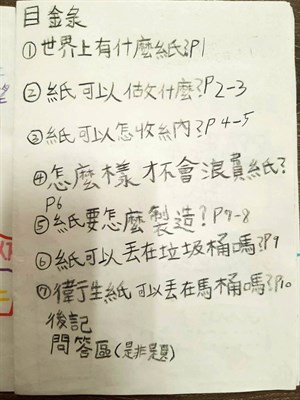 目金彔
①世界上有什麼紙?P1
②紙可以做什麼?P2-3
③紙可以怎收納?P4-5
④怎麼樣才不會浪費紙?
P6
⑤紙要怎麼製造?P7-8
⑥紙可以丟在垃圾桶嗎?P9
⑦衛生紙可以丟在馬桶嗎?P10
後記
問答區(是非題)